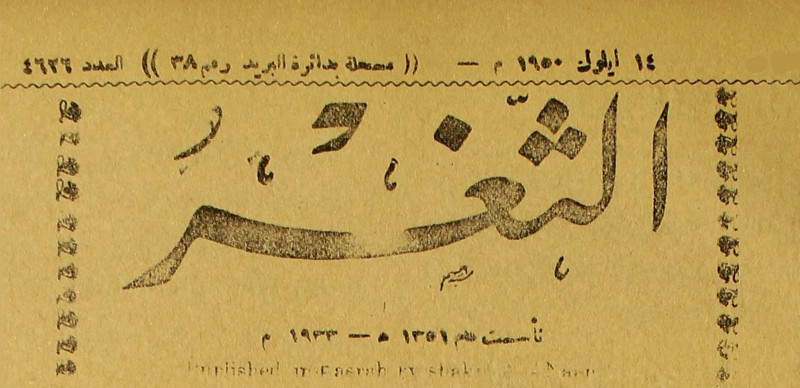 ١٤ ايلول ١٩٥٠ م — (( مسجلة بدائرة البريد رقم ٣٨ )) العدد ٤٦٢٦
الثَّغْرُ
تأسست عام ١٣٥١ ه — ١٩٣٣ م
Published in Basrah by